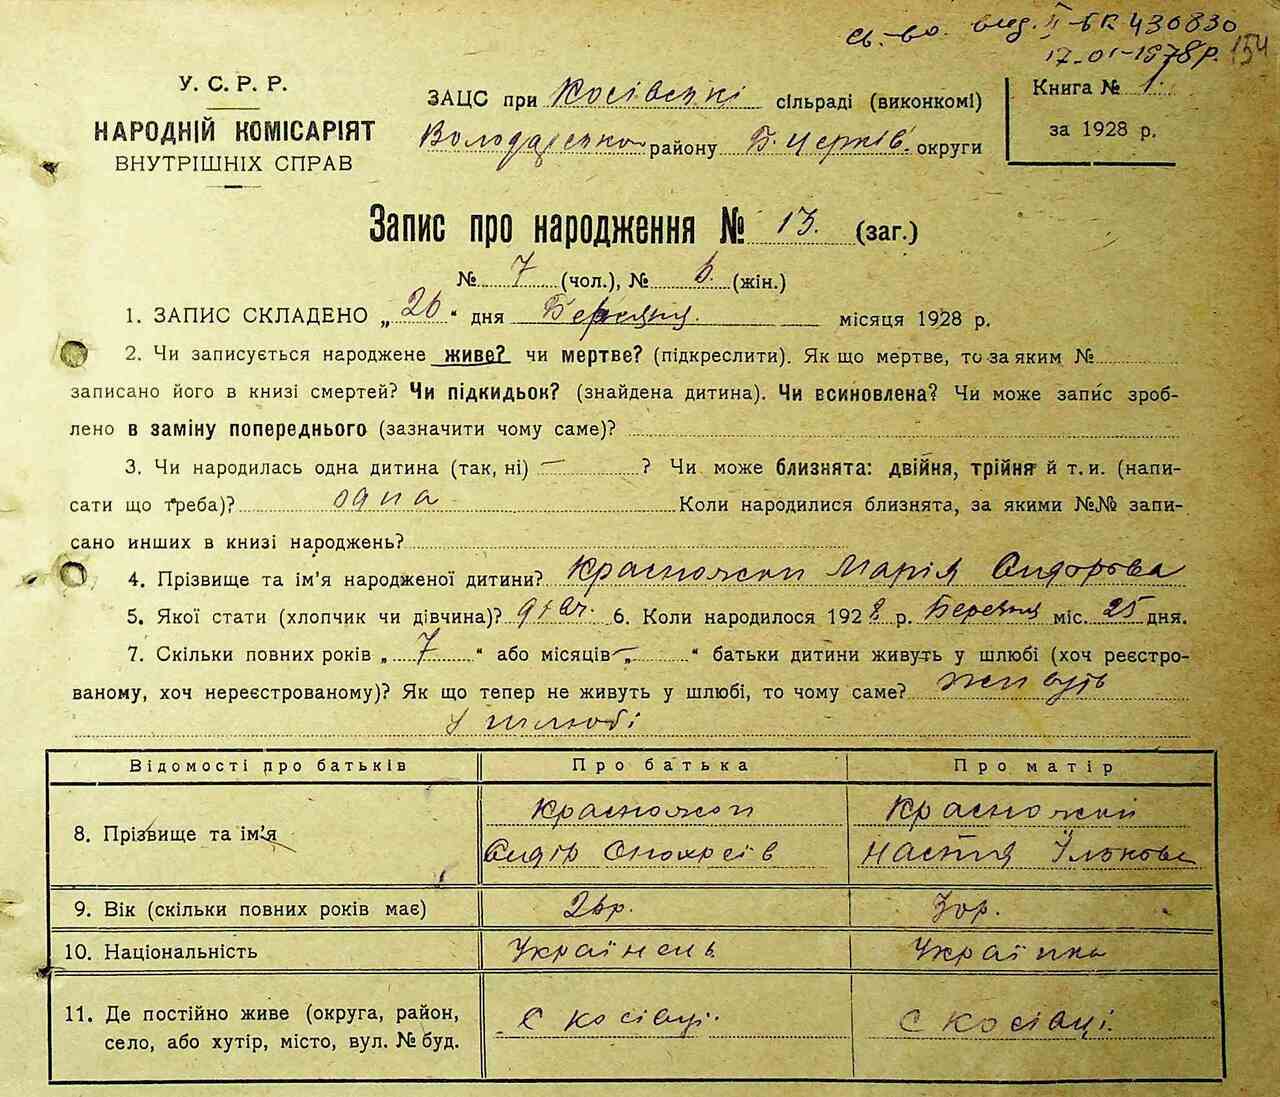 св-во. вид. II-БК 430830
17-01-1978 р. 154
У. С. Р. Р.
НАРОДНІЙ КОМІСАРІЯТ
ВНУТРІШНІХ СПРАВ
ЗАЦС при Косівській сільраді (виконкомі)
Володарського району Б. Церків. округи
Книга № 1.
за 1928 р.
Запис про народження № 13. (заг.)
№ 7 (чол.), № 6. (жін.)
1. ЗАПИС СКЛАДЕНО „ 26 “ дня Березня. місяця 1928 р.
2. Чи записується народжене живе? чи мертве? (підкреслити). Як що мертве, то за яким №
записано його в книзі смертей? Чи підкидьок? (знайдена дитина). Чи всиновлена? Чи може запис зроб-
лено в заміну попереднього (зазначити чому саме)?
3. Чи народилась одна дитина (так, ні) — ? Чи може близнята: двійня, трійня й т. и. (напи-
сати що треба)? одна Коли народилися близнята, за якими №№ запи-
сано инших в книзі народжень?
4. Прізвище та ім'я народженої дитини? Красножон Марія Сидорова
5. Якої стати (хлопчик чи дівчина)? дівч. 6. Коли народилося 1928 р. Березня міс. 25 дня.
7. Скільки повних років „ 7 “ або місяців „ — “ батьки дитини живуть у шлюбі (хоч реєстро-
ваному, хоч нереєстрованому)? Як що тепер не живуть у шлюбі, то чому саме? живуть
у шлюбі
Відомості про батьків Про батька Про матір
8. Прізвище та ім'я Красножон Красножон
Сидір Настя
9. Вік (скільки повних років має) 26р. 30р.
10. Національність Українець Українка
11. Де постійно живе (округа, район, с Косівці. с Косівці.
село, або хутір, місто, вул. № буд.